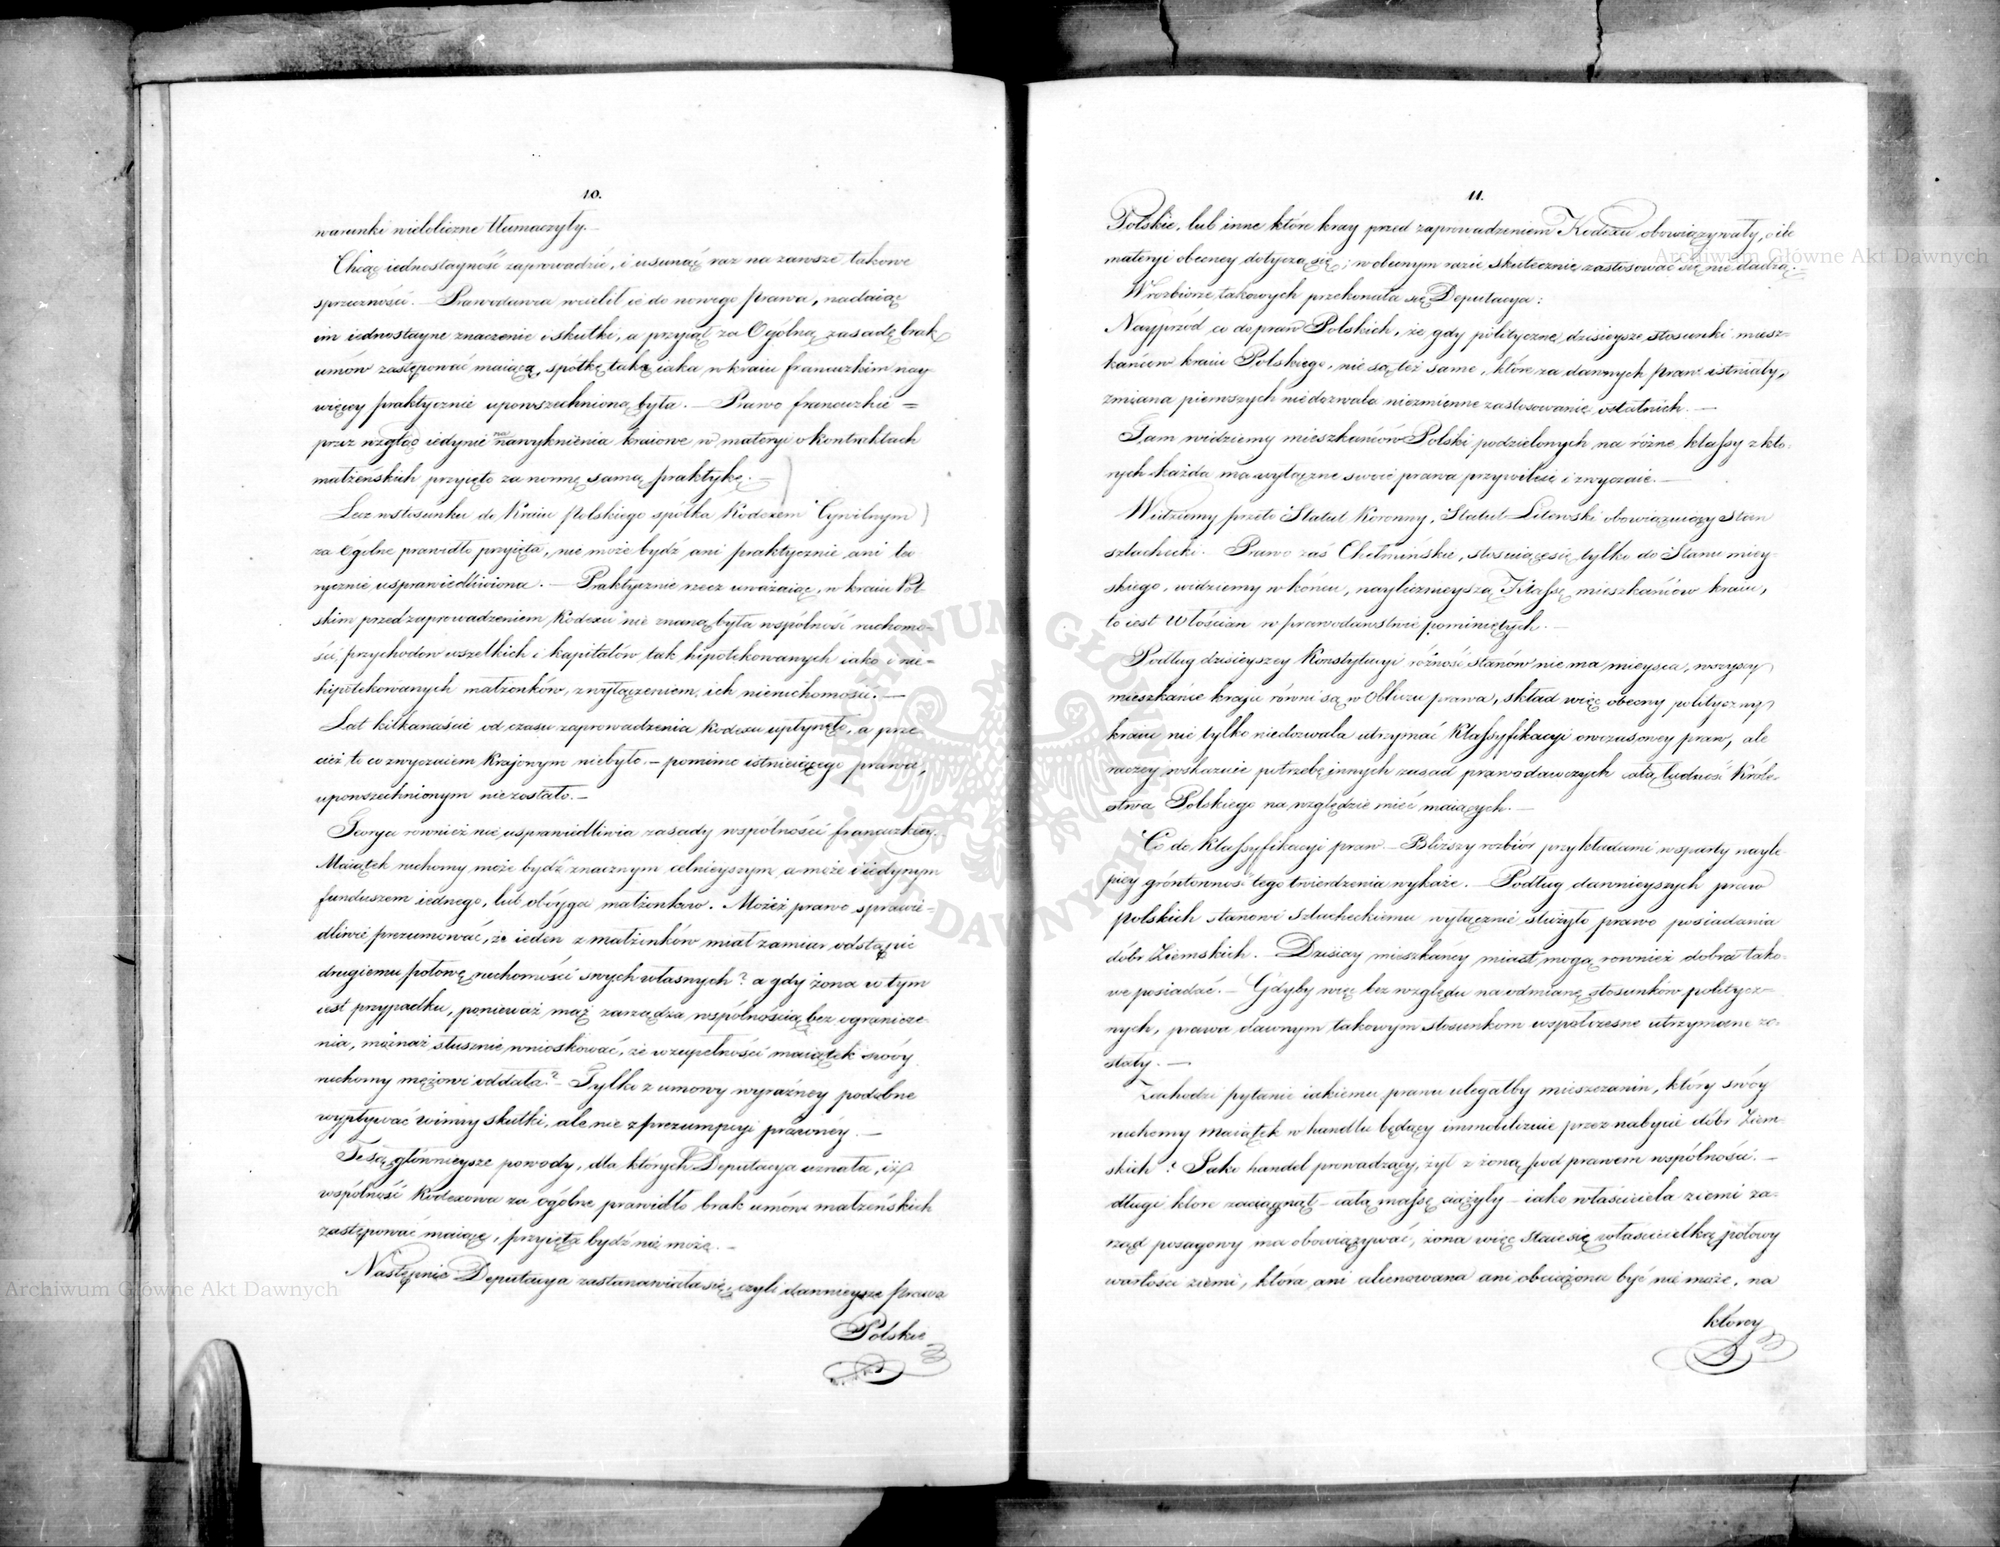 10.
warunki wieloliczne tłumaczyły. —
Chcąc iednostayność zaprowadzić, i usunąć raz na zawsze takowe
sprzeczności. — Prawodawca wcielił ie do nowego prawa, nadaiąc
im iednostayne znaczenie i skutki, a przyiął za Ogólną zasadę brak
umów zastępować maiącą, spółkę taką iaka w kraiu francuzkim nay-
więcey praktycznie upowszechnioną była. — Prawo francuzkie =
przez wzgląd iedynie na nawyknienia kraiowe w materyi o kontraktach
małżeńskich przyięto za normę samą praktykę. —
Lecz w stosunku do Kraiu Polskiego spółka Kodexem Cywilnym
za ogólne prawidło przyięta, nie może bydź ani praktycznie ani teo
rycznie usprawiedliwiona. — Praktycznie rzecz uważaiąc, w kraiu Pol-
skim przed zaprowadzeniem Kodexu nie znaną była wspólność ruchomo-
ści, przychodów wszelkich i kapitałów tak hipotekowanych iako i nie-
hipotekowanych małżonków, z wyłączeniem ich nieruchomości. —
Lat kilkanaście od czasu zaprowadzenia Kodexu upłynęło, a prze
cież to co zwyczaiem Krajowym niebyło. — pomimo istnieiącego prawa,
upowszechnionym nie zostało. —
Teorya również nie usprawiedliwia zasady wspólności francuzkiey.
Maiątek ruchomy może bydź znacznym celnieyszym, a może i iedynym
funduszem iednego, lub obóyga małżonków. Możeż prawo sprawie-
dliwie prezumować, że ieden z małżonków miał zamiar odstąpić
drugiemu połowę ruchomości swych własnych? a gdy żona w tym
iest przypadku, ponieważ mąż zarządza wspólnością bez ogranicze-
nia, możnaż słusznie wnioskować, że w zupełności maiątek swóy
ruchomy mężowi oddała? — Tylko z umowy wyraźney podobne
wypływać winny skutki, ale nie z prezumpcyi prawnéy. —
Te są główniejsze powody, dla których Deputacya uznała, iż
wspólność Kodexowa za ogólne prawidło brak umów małżeńskich
zastępować maiące, przyiętą bydź nie może. —
Następnie Deputacya zastanawiała się, czyli dawnieysze prawa
Polskie
11.
Polskie, lub inne które kray przed zaprowadzeniem Kodexu obowiązywały, o ile
materyi obecney dotyczą się, w obecnym razie skutecznie zastosować się nie dadzą. —
W rozbiorze takowych przekonała się Deputacya:
Nayprzód co do praw Polskich, że gdy polityczne dzisieysze stosunki miesz-
kańców kraiu Polskiego, nie są też same, które za dawnych praw istniały,
zmiana pierwszych niedozwala niezmienne zastosowanie ostatnich. —
Tam widziemy mieszkańców Polski podzielonych na różne klassy z któ-
rych każda ma wyłączne swoie prawa przywileie i zwyczaie. —
Widziemy przeto Statut Koronny, Statut Litewski obowiązuiący Stan
szlachecki. Prawo zaś Chełmińskie, stosuiące się tylko do Stanu miey-
skiego, widziemy w końcu, nayliczniejszą Klassę mieszkańców kraiu,
to iest Włościan w prawodawstwie pominiętych. —
Podług dzisieyszey Konstytucyi różność stanów nie ma mieysca, wszyscy
mieszkańce kraju równi są w Obliczu prawa, skład więc obecny polityczny
kraiu nie tylko niedozwala utrzymać Klassyfikacyi owczasowey praw, ale
raczey wskazuie potrzebę innych zasad prawodawczych całą ludność Króle-
stwa Polskiego na względzie mieć maiących. —
Co do Klassyfikacyi praw — Bliższy rozbiór przykładami wsparty nayle-
piey gróntowność tego twierdzenia wykaże. — Podług dawnieyszych praw
polskich stanowi szlacheckiemu wyłącznie służyło prawo posiadania
dóbr Ziemskich. — Dzisiay mieszkańcy miast mogą również dobra tako-
we posiadać. — Gdyby więc bez względu na odmianę stosunków politycz-
nych, prawa dawnym takowym stosunkom współczesne utrzymane zo-
stały. —
Zachodzi pytanie iakiemu prawu ulegałby mieszczanin, który swóy
ruchomy maiątek w handlu będący immobilizuie przez nabycie dóbr Ziem-
skich? Jako handel prowadzący, żył z żoną pod prawem wspólności. —
długi które zaciągnął — całą massę ciążyły — iako właściciela ziemi za-
rząd posagowy ma obowiązywać, żona więc staie się właścicielką połowy
wartości ziemi, która ani alienowana ani obciążona być nie może, na
którey
Archiwum Główne Akt Dawnych
Archiwum Główne Akt Dawnych
ARCHIWUM GŁÓWNE AKT DAWNYCH